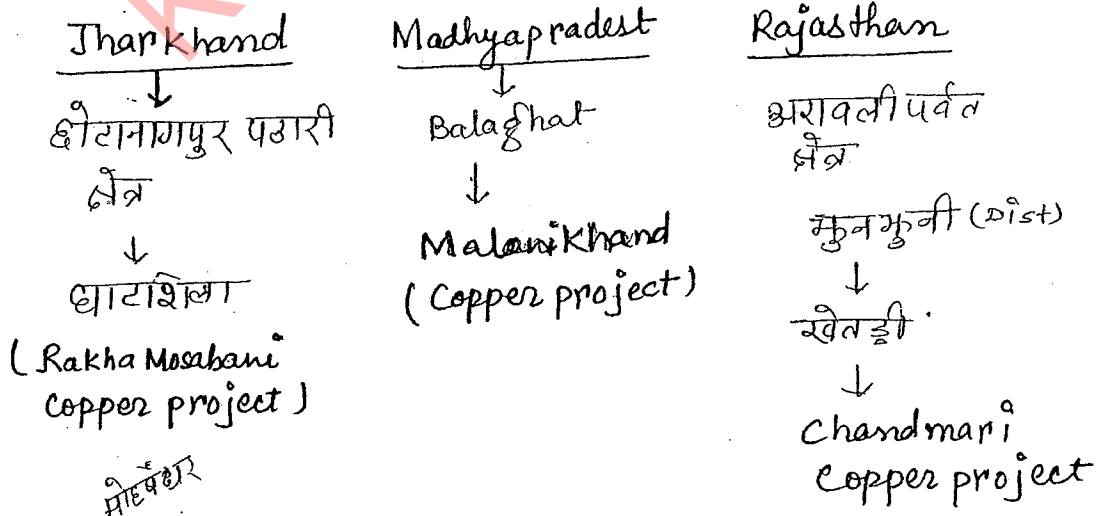 Jharkhand
छोटानागपुर पठारी
क्षेत्र
घाटशिला
(Rakha Mosabani
copper project)
Madhyapradest
Balaghat
Malanikhand
(Copper project)
Rajasthan
अरावली पर्वत
क्षेत्र
झुनझुनी (Dist)
खेतड़ी
Chandmari
Copper project